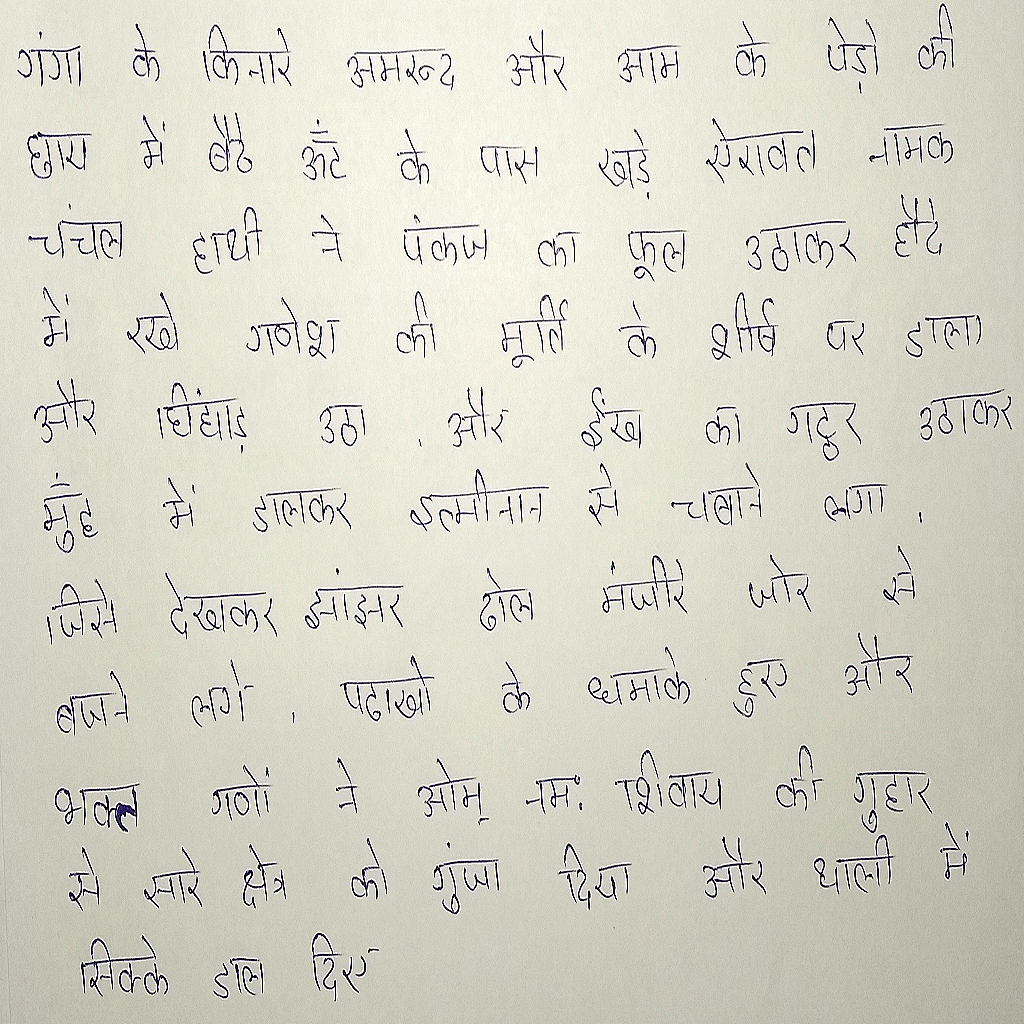 गंगा के किनारे अमरुद और आम के पेड़ो की
छाय में बैठे ऊँट के पास खड़े ऐरावत नामक
चंचल हाथी ने पंकज का फूल उठाकर हौदे
में रखे गणेश की मूर्ति के शीर्ष पर डाला
और चिंघाड़ उठा . और ईख का गट्ठर उठाकर
मुँह में डालकर इत्मीनान से चबाने लगा .
जिसे देखकर झांझर ढोल मंजीरे जोर से
बजने लगे . पटाखो के धमाके हुए और
भक्त गणों ने ओम् नम: शिवाय की गुहार
से सारे क्षेत्र को गुंजा दिया और थाली में
सिक्के डाल दिए